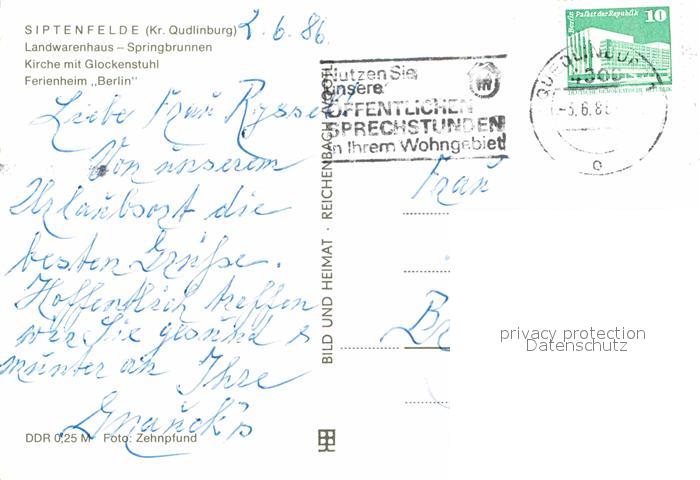 SIPTENFELDE (Kr. Qudlinburg)
2.6.86
Landwarenhaus – Springbrunnen
Kirche mit Glockenstuhl
Ferienheim „Berlin"
Liebe Frau
Von unserem
Urlaubsort die
besten Grüße.
Hoffentlich treffen
wir Sie gesund &
munter an Ihre
Gnauck's
DDR 0,25 M Foto: Zehnpfund
BILD UND HEIMAT · REICHENBACH
Nutzen Sie
unsere
ÖFFENTLICHEN
SPRECHSTUNDEN
in Ihrem Wohngebiet
QUEDLINBURG
4300
-3.6.86
Berlin Palast der Republik
10
DEUTSCHE DEMOKRATISCHE REPUBLIK
Frau
privacy protection
Datenschutz